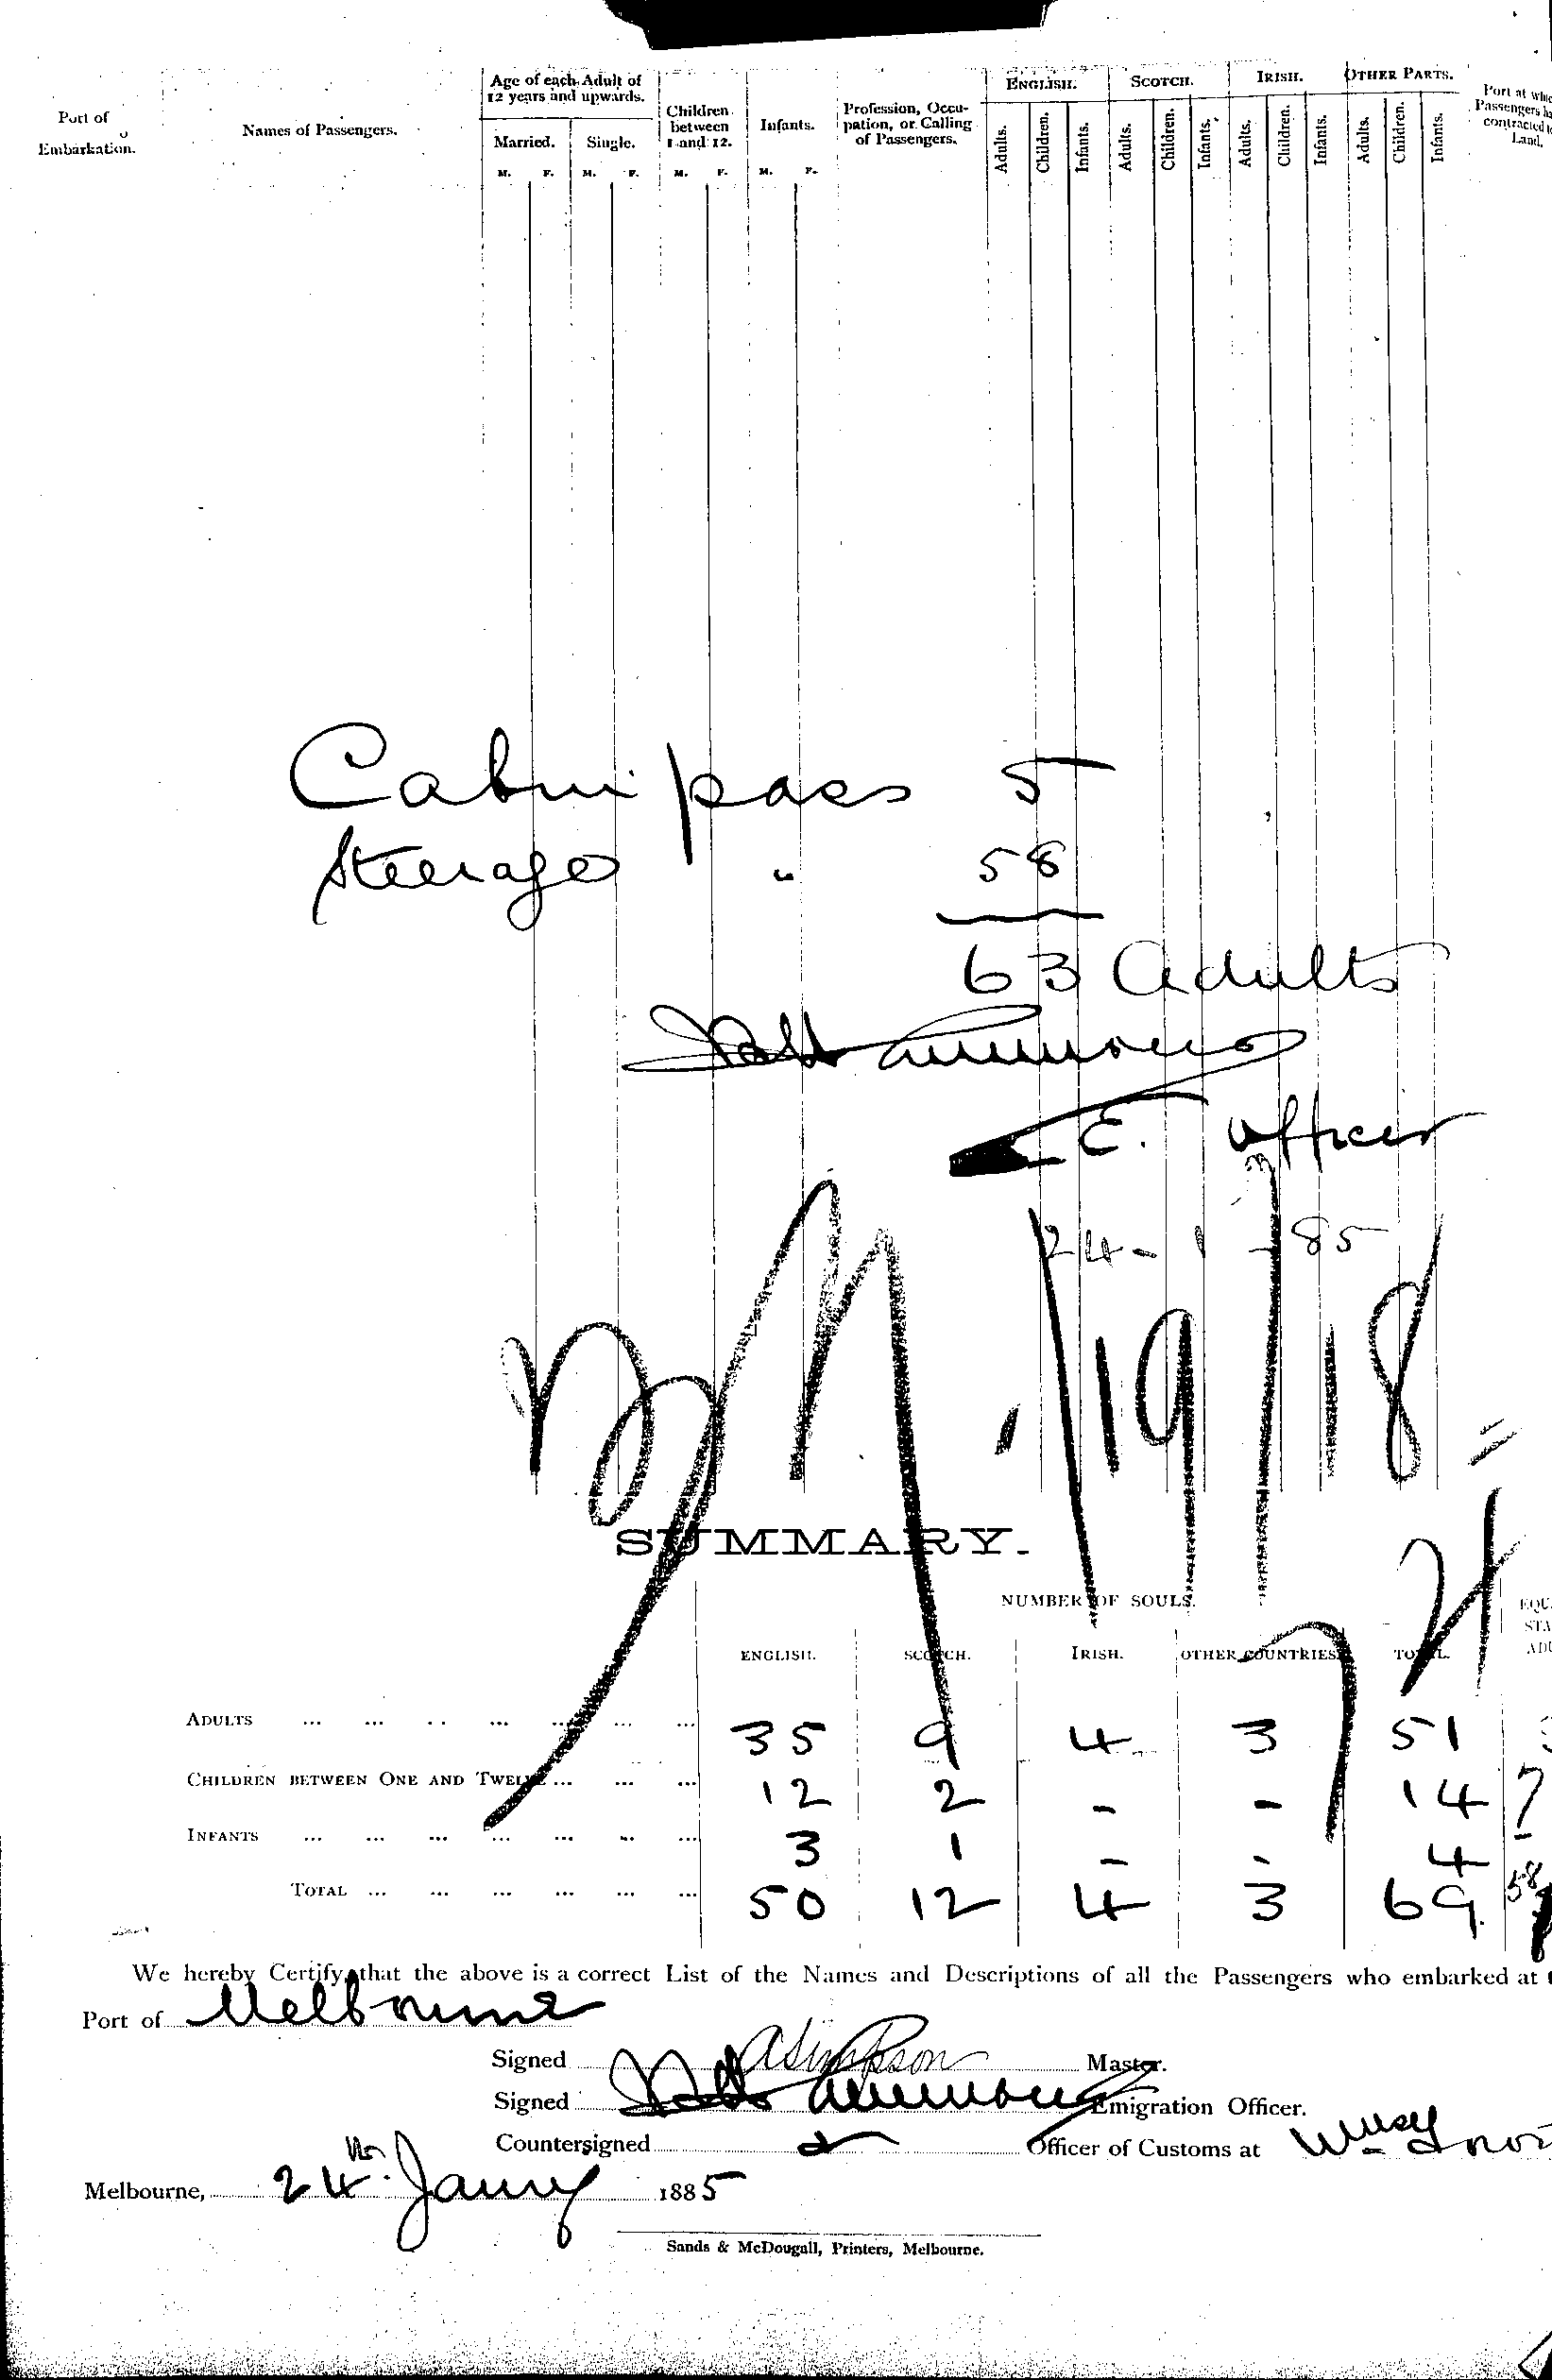 Port of Embarkation. Names of Passengers. Age of each Adult of 12 years and upwards. Children between 1 and 12. Infants. Profession, Occupation, or Calling of Passengers. ENGLISH. SCOTCH. IRISH. OTHER PARTS. Port at Passengers contracted Land.
Married. Single.
M. F. M. F. M. F. M. F. Adults. Children. Infants. Adults. Children. Infants. Adults. Children. Infants. Adults. Children. Infants.
Cabin pass 5
Steerage " 58
63 Adults
E. Officer
24-1-85
SUMMARY.
NUMBER OF SOULS.
ENGLISH. SCOTCH. IRISH. OTHER COUNTRIES TOTAL.
ADULTS ... ... .. ... ... ... ... 35 9 4 3 51
CHILDREN BETWEEN ONE AND TWELVE ... ... ... 12 2 - - 14 7
INFANTS ... ... ... ... ... ... ... 3 1 - - 4
TOTAL ... ... ... ... ... ... 50 12 4 3 69 58
We hereby Certify that the above is a correct List of the Names and Descriptions of all the Passengers who embarked at
Port of Melbourne
Signed A Simpson Master.
Signed Emigration Officer.
Countersigned Officer of Customs at
Melbourne, 24th Janry 1885
Sands & McDougall, Printers, Melbourne.